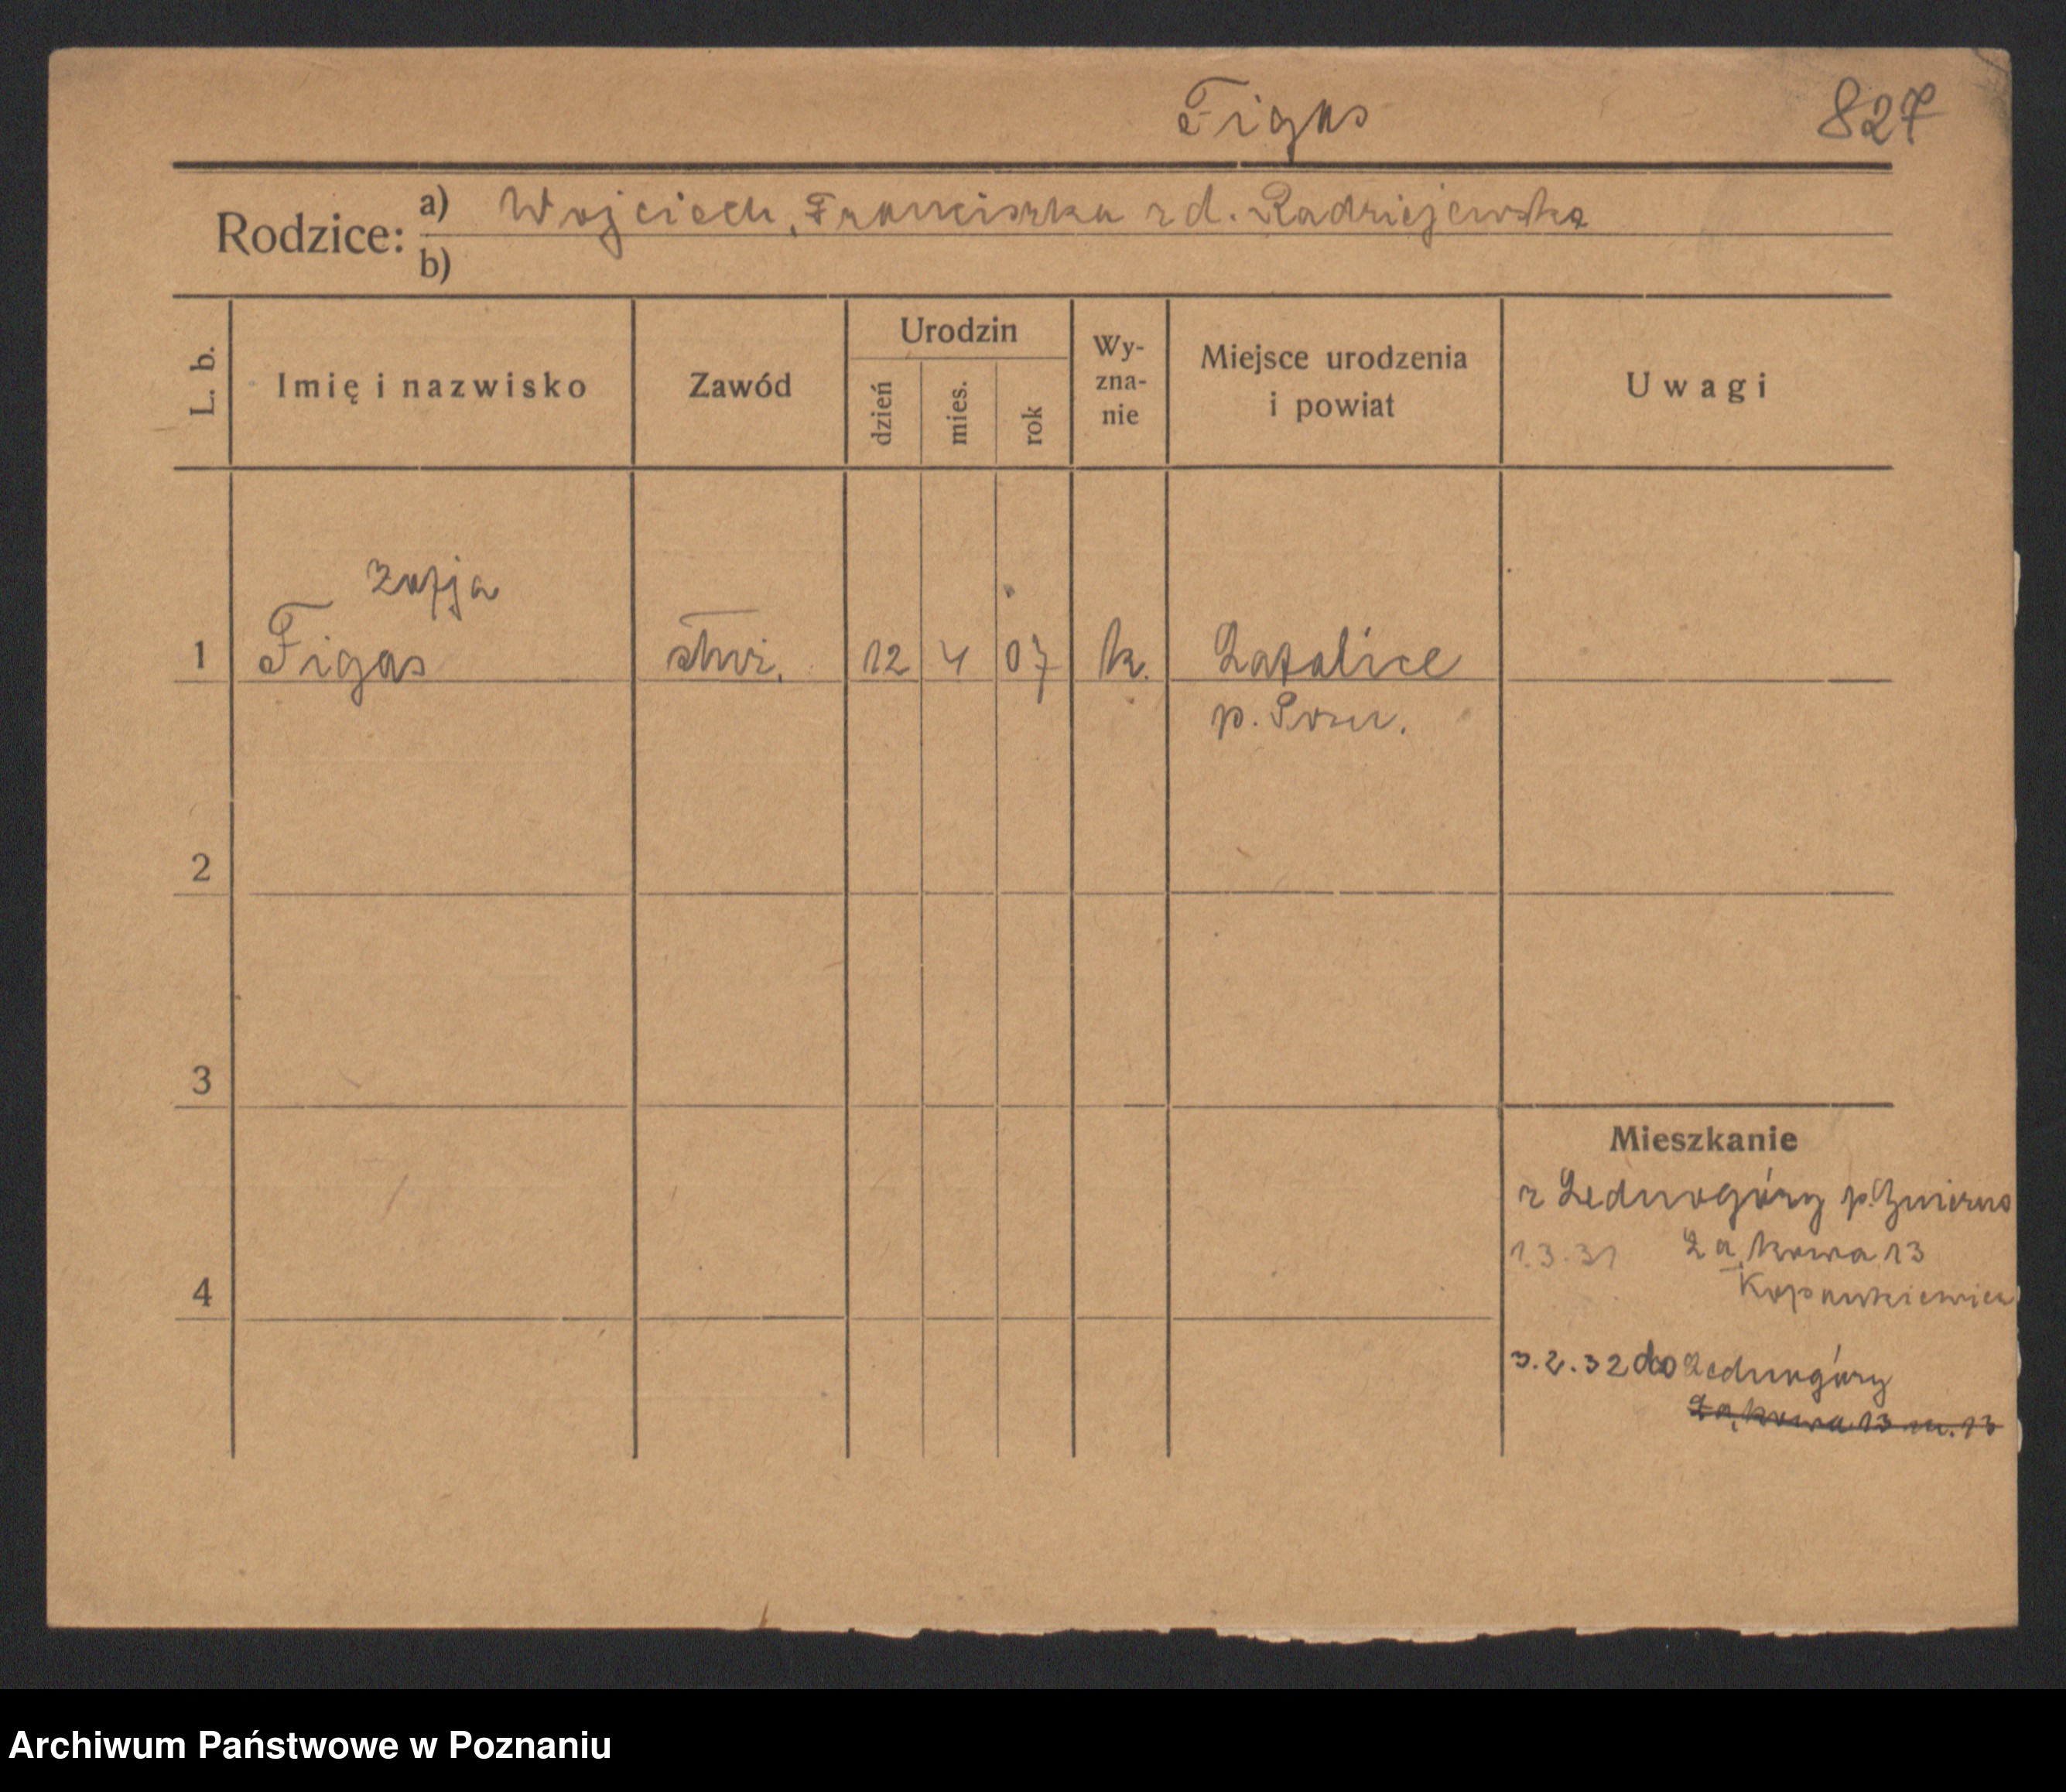 Figas 827
Rodzice: a) Wojciech, Franciszka zd. Radziejewska
b)
L. b. Imię i nazwisko Zawód Urodzin dzień mies. rok Wy-zna-nie Miejsce urodzenia i powiat Uwagi
Zofja
1 Figas służ. 12 4 07 k. Łatalice
p. Pozn.
2
3
Mieszkanie
z Lednogóry p. Gniezno
1.3.31 Łąkowa 13
4
3.2.32 do Lednogóry
Łąkowa 13 m. 13
Archiwum Państwowe w Poznaniu